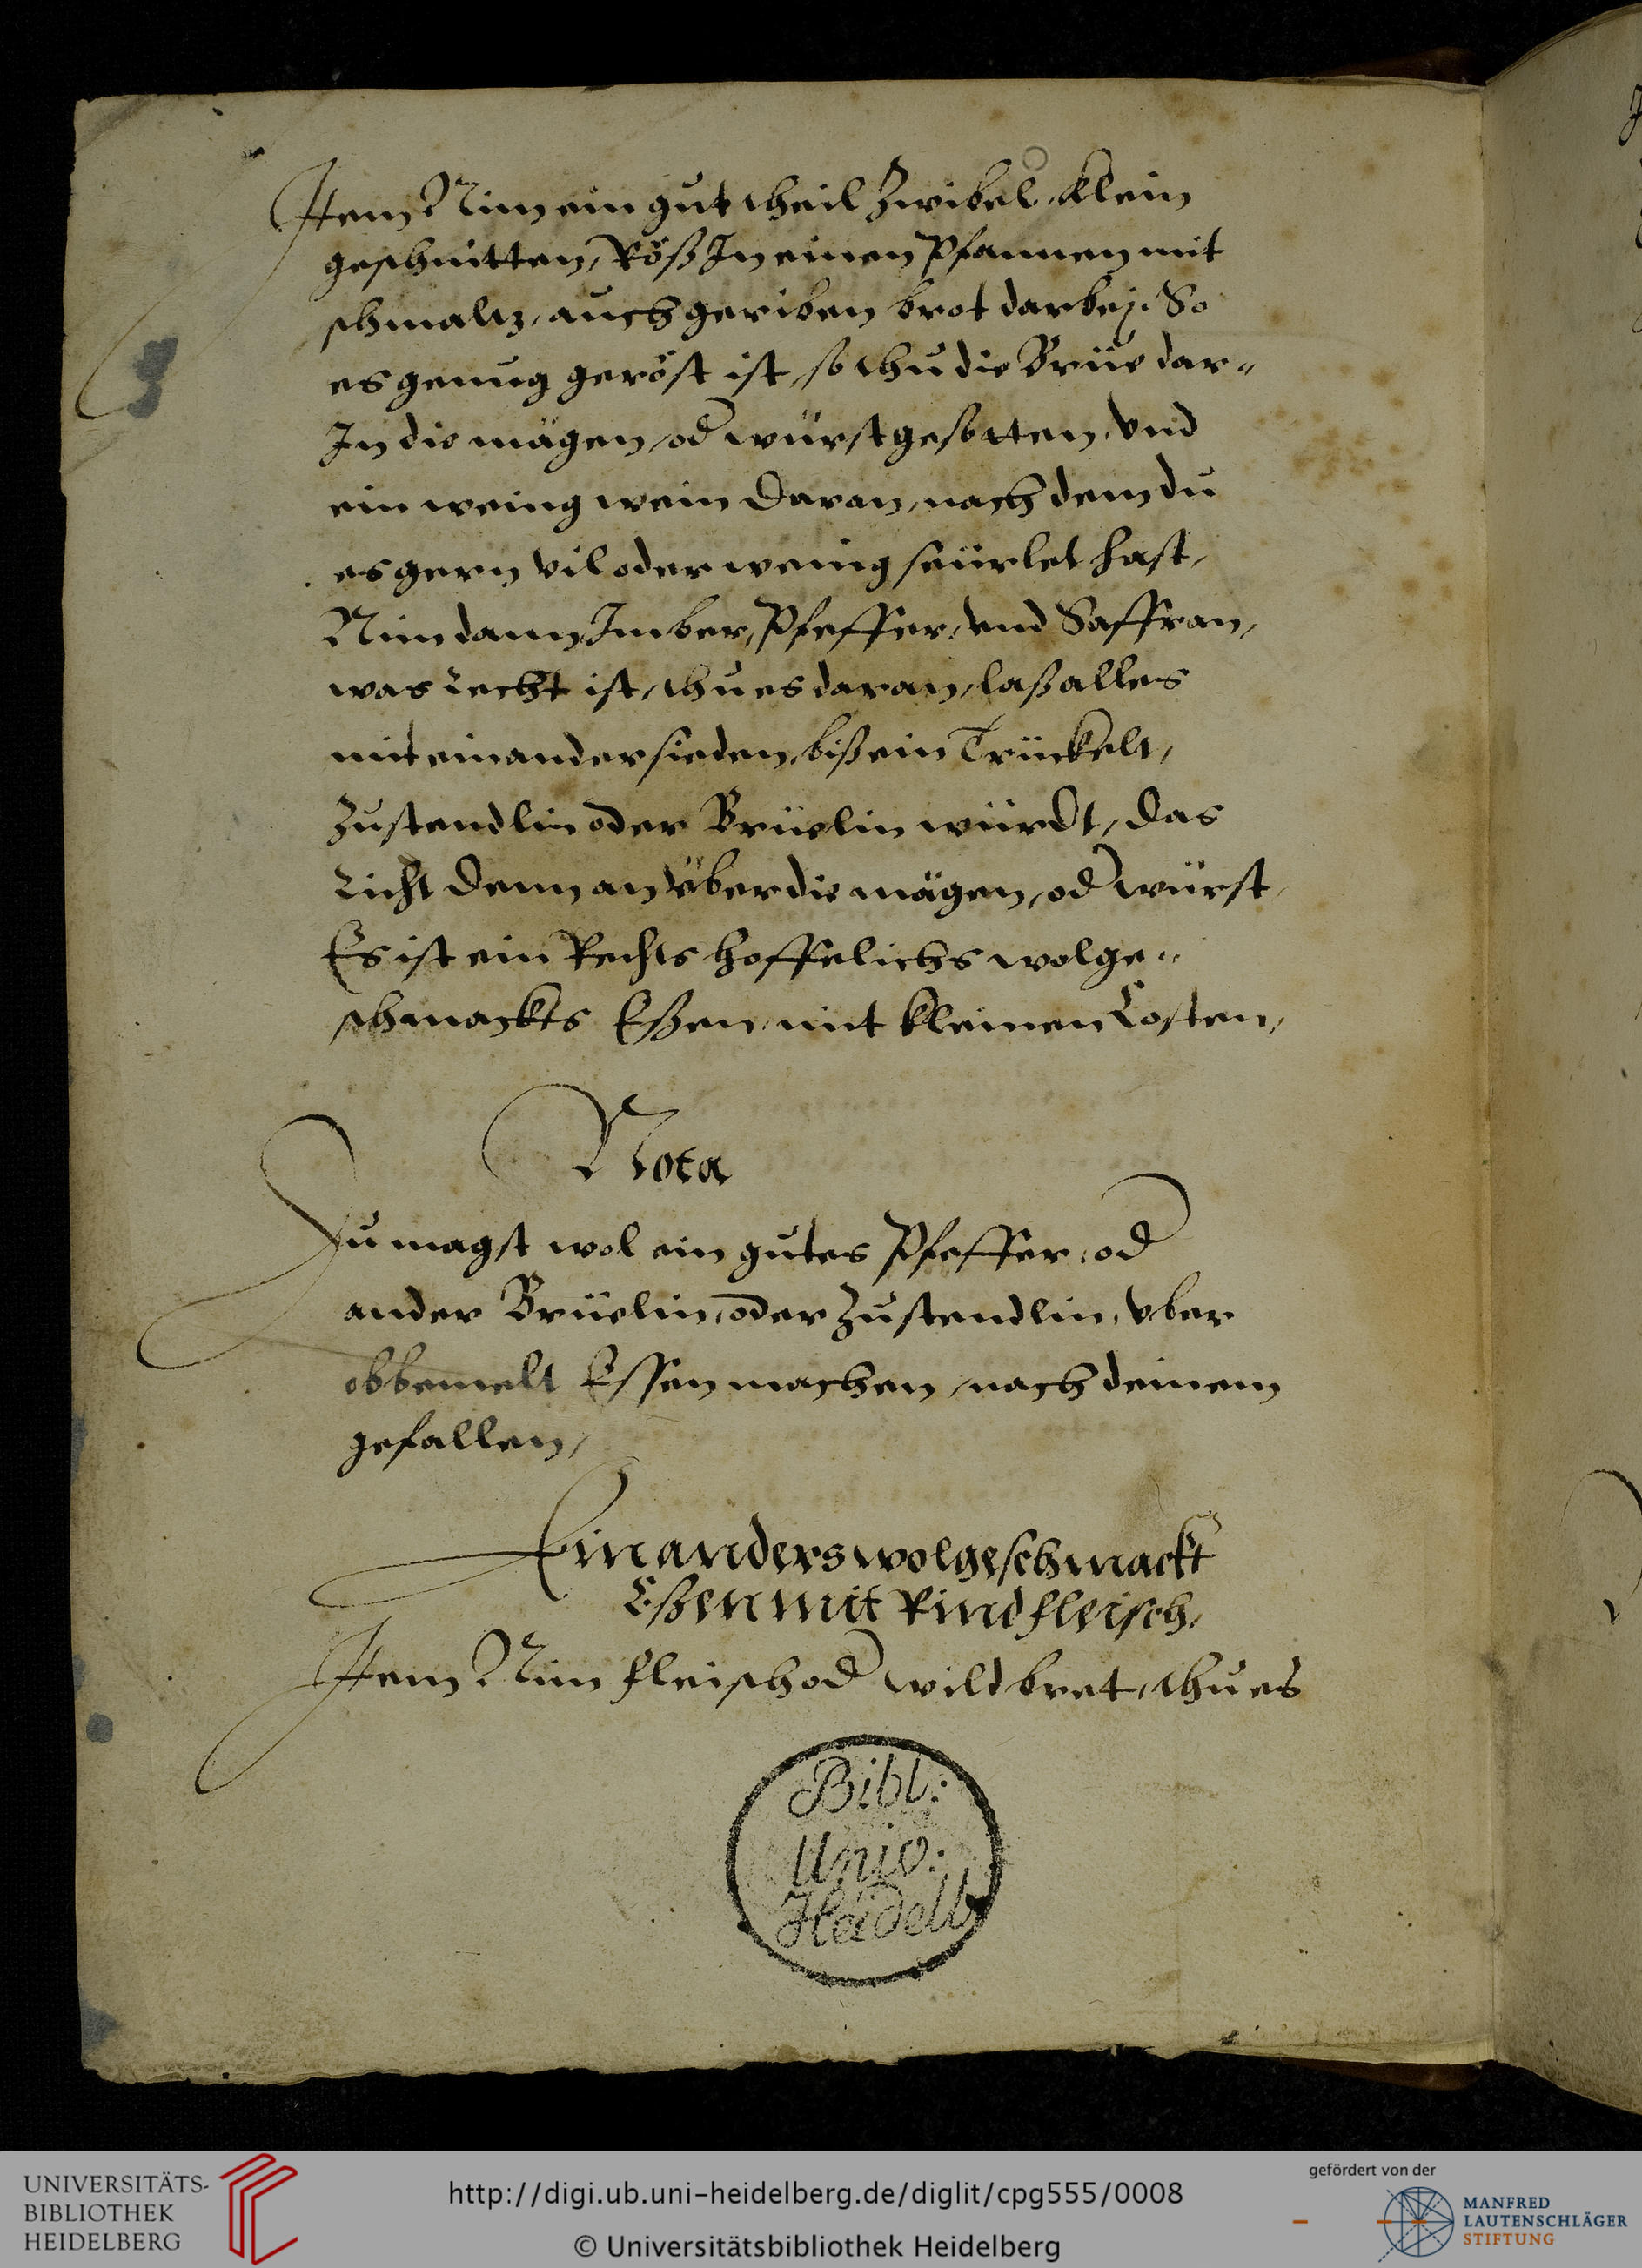 Item Nim ein gut theil Zwibel, klein
geschnitten, Röß In einen Pfannen mit
schmaltz, auch geriben brot darbej. So
es genug geröst ist, so thu die Brüe dar-
In die mägen, od würst gesotten, vnd
ein wenig wein daran, nach dem du
es gern vil oder wenig seürlet hast,
Nim dann Imber, Pfeffer, vnd Saffran,
was recht ist, thu es daran, laß alles
mit einander sieden, biß ein Trückelt,
Zustendlin oder Brüelin würdt, das
richt denn an über die mägen, od würst,
Es ist ein Rechts hoffelichs wolge-
schmackts Eßen, mit kleinen Costen,
Nota
Du magst wol ein gutes Pfeffer, od
ander Brüelin, oder Zustendlin, vber
obbemelt Essen machen, nach deinem
gefallen,
Ein anders wolgeschmackt
Eßen mit Rindfleisch,
Item Nim fleisch od wildbret, thu es
Bibl:
Univ:
Heidelb.
UNIVERSITÄTS-
BIBLIOTHEK
HEIDELBERG
http://digi.ub.uni-heidelberg.de/diglit/cpg555/0008
© Universitätsbibliothek Heidelberg
gefördert von der
MANFRED
LAUTENSCHLÄGER
STIFTUNG